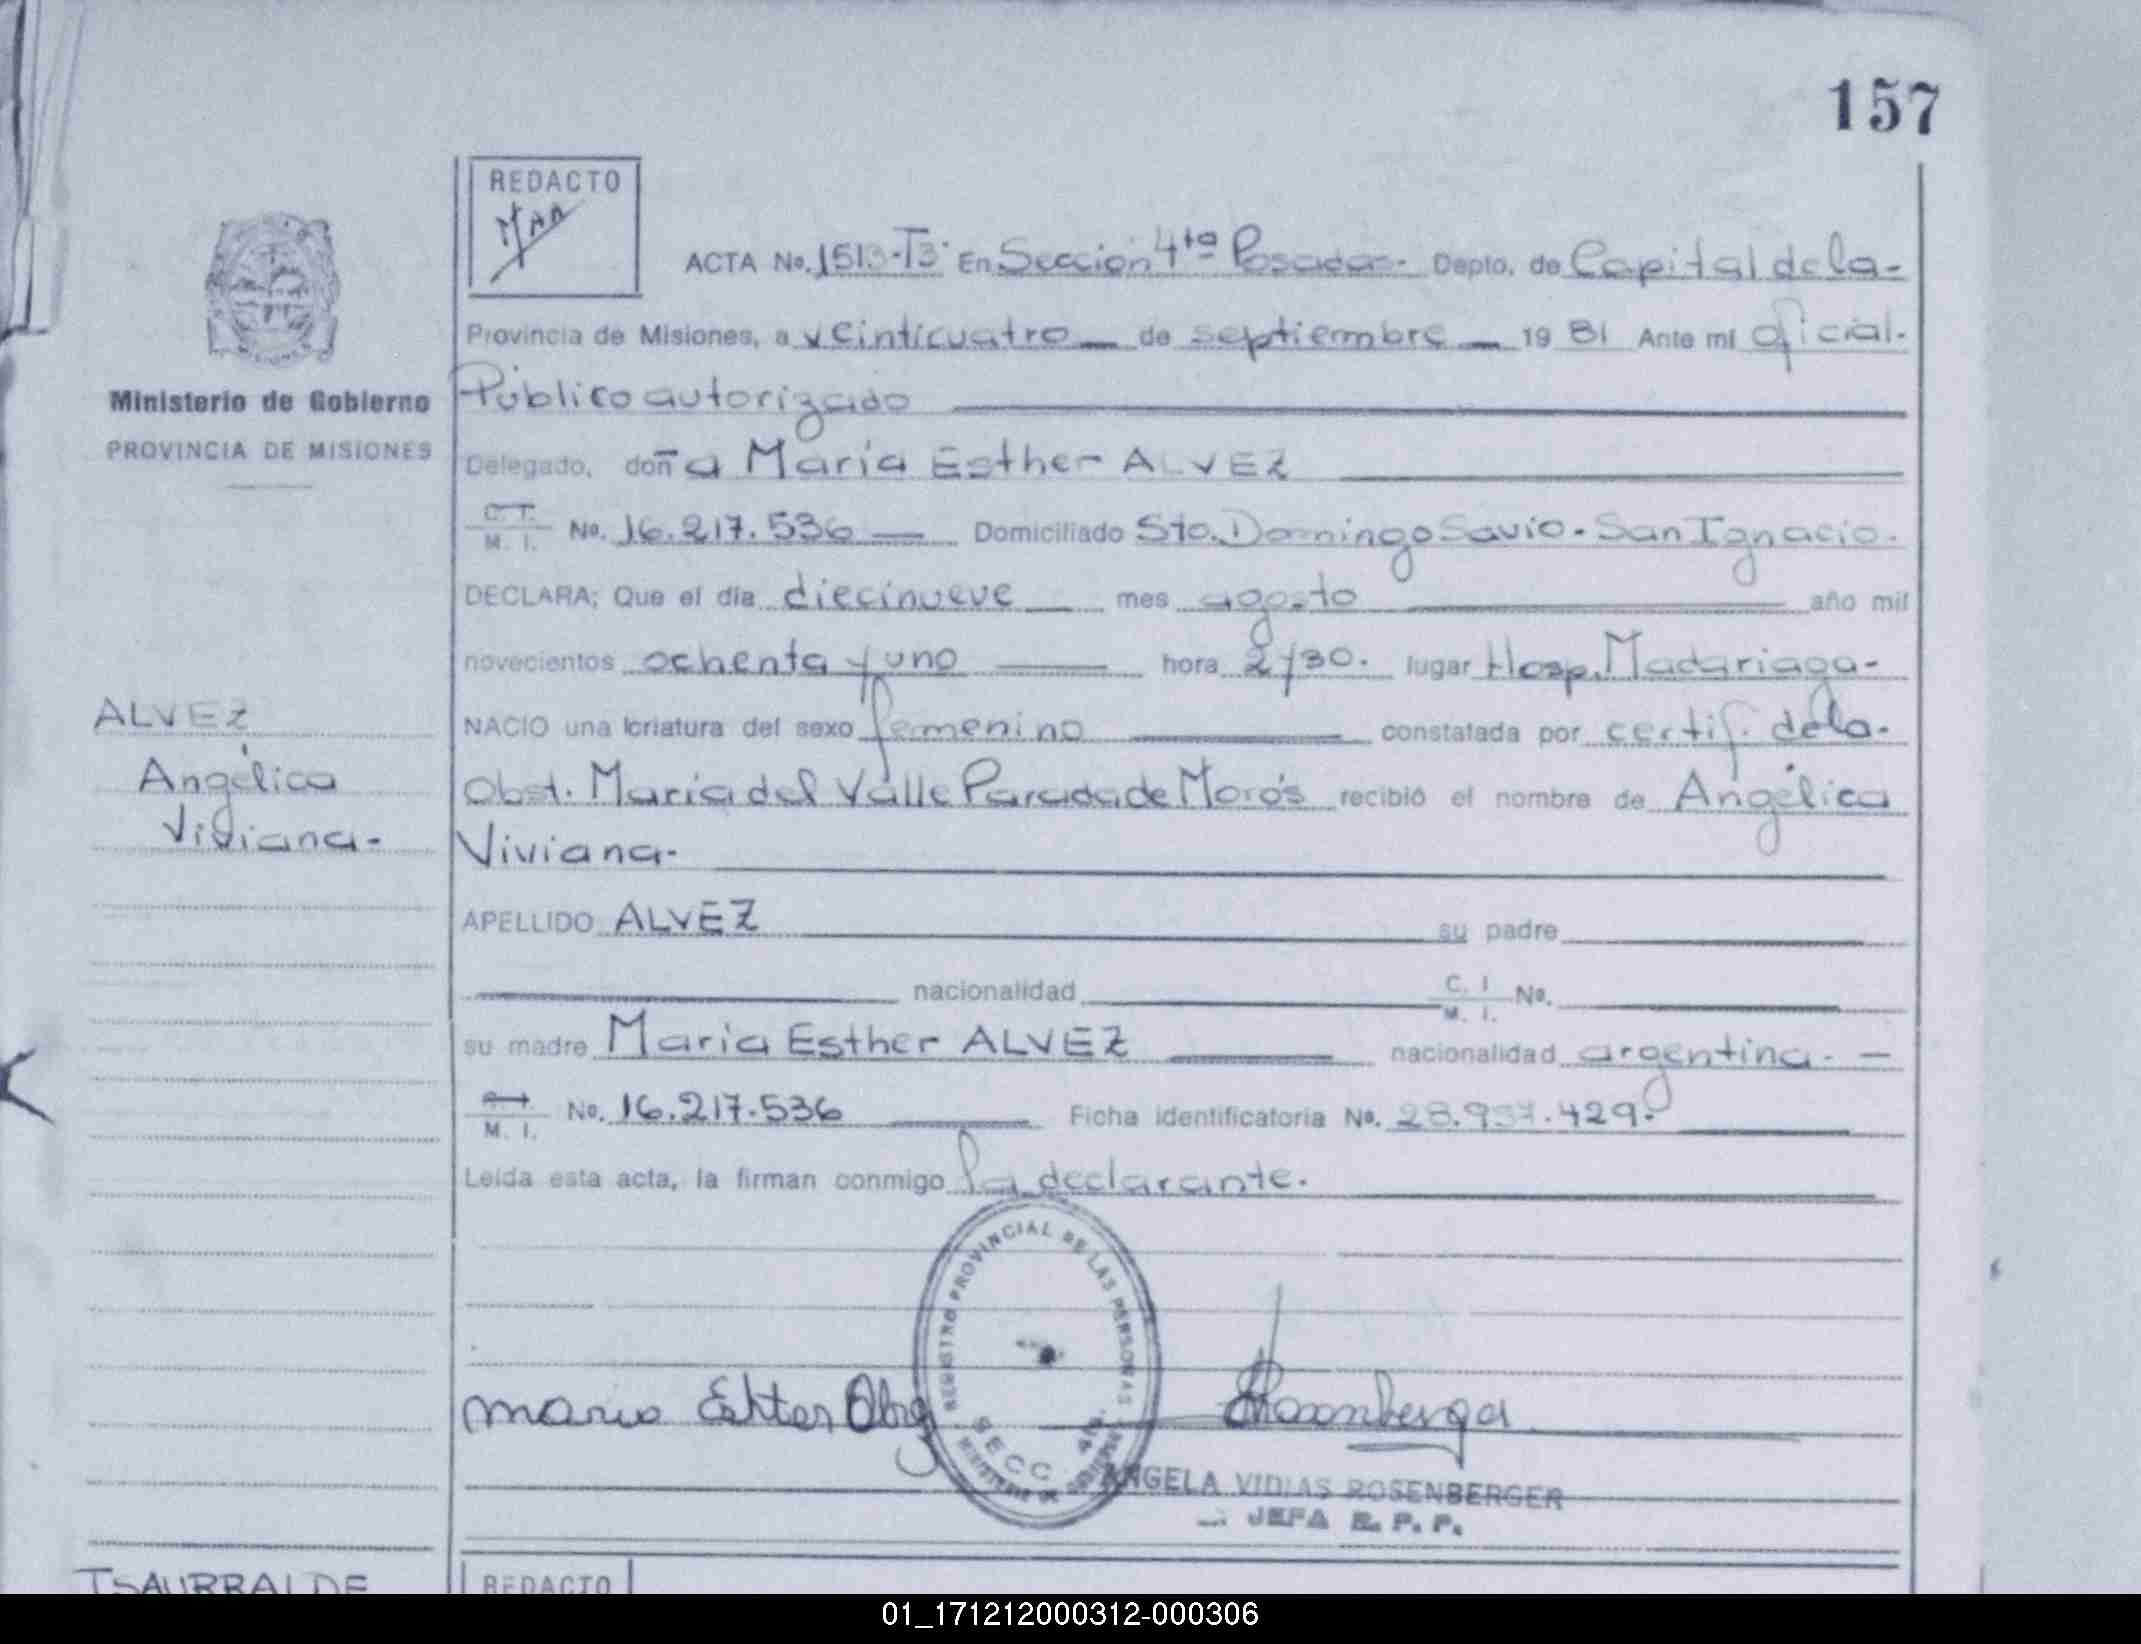 157
REDACTO
ACTA No. 1513-T3· En Sección 4ta Posadas- Depto. de Capital de la-
Provincia de Misiones, a veinticuatro — de septiembre — 19 81 Ante mí Oficial-
Público autorizado
Ministerio de Gobierno
PROVINCIA DE MISIONES
Delegado, doña María Esther ALVEZ
M. I. No. 16.217.536 — Domiciliado Sto. Domingo Savio - San Ignacio.
DECLARA; Que el día diecinueve — mes agosto año mil
novecientos ochenta y uno hora 2/30. lugar Hosp. Madariaga-
NACIO una criatura del sexo femenino constatada por certif. de la-
Obst. María del Valle Parada de Morós recibió el nombre de Angélica
Viviana-
ALVEZ
Angélica
Viviana-
APELLIDO ALVEZ su padre
nacionalidad C. I. M. I. No.
su madre María Esther ALVEZ nacionalidad argentina. —
M. I. No. 16.217.536 Ficha identificatoria No. 28.937.429.
Leída esta acta, la firman conmigo la declarante.
REGISTRO PROVINCIAL DE LAS PERSONAS
SECC 4ta.
MINISTERIO DE GOBIERNO
ANGELA VIDIAS ROSENBERGER
JEFA R. P. P.
REDACTO
01_171212000312-000306